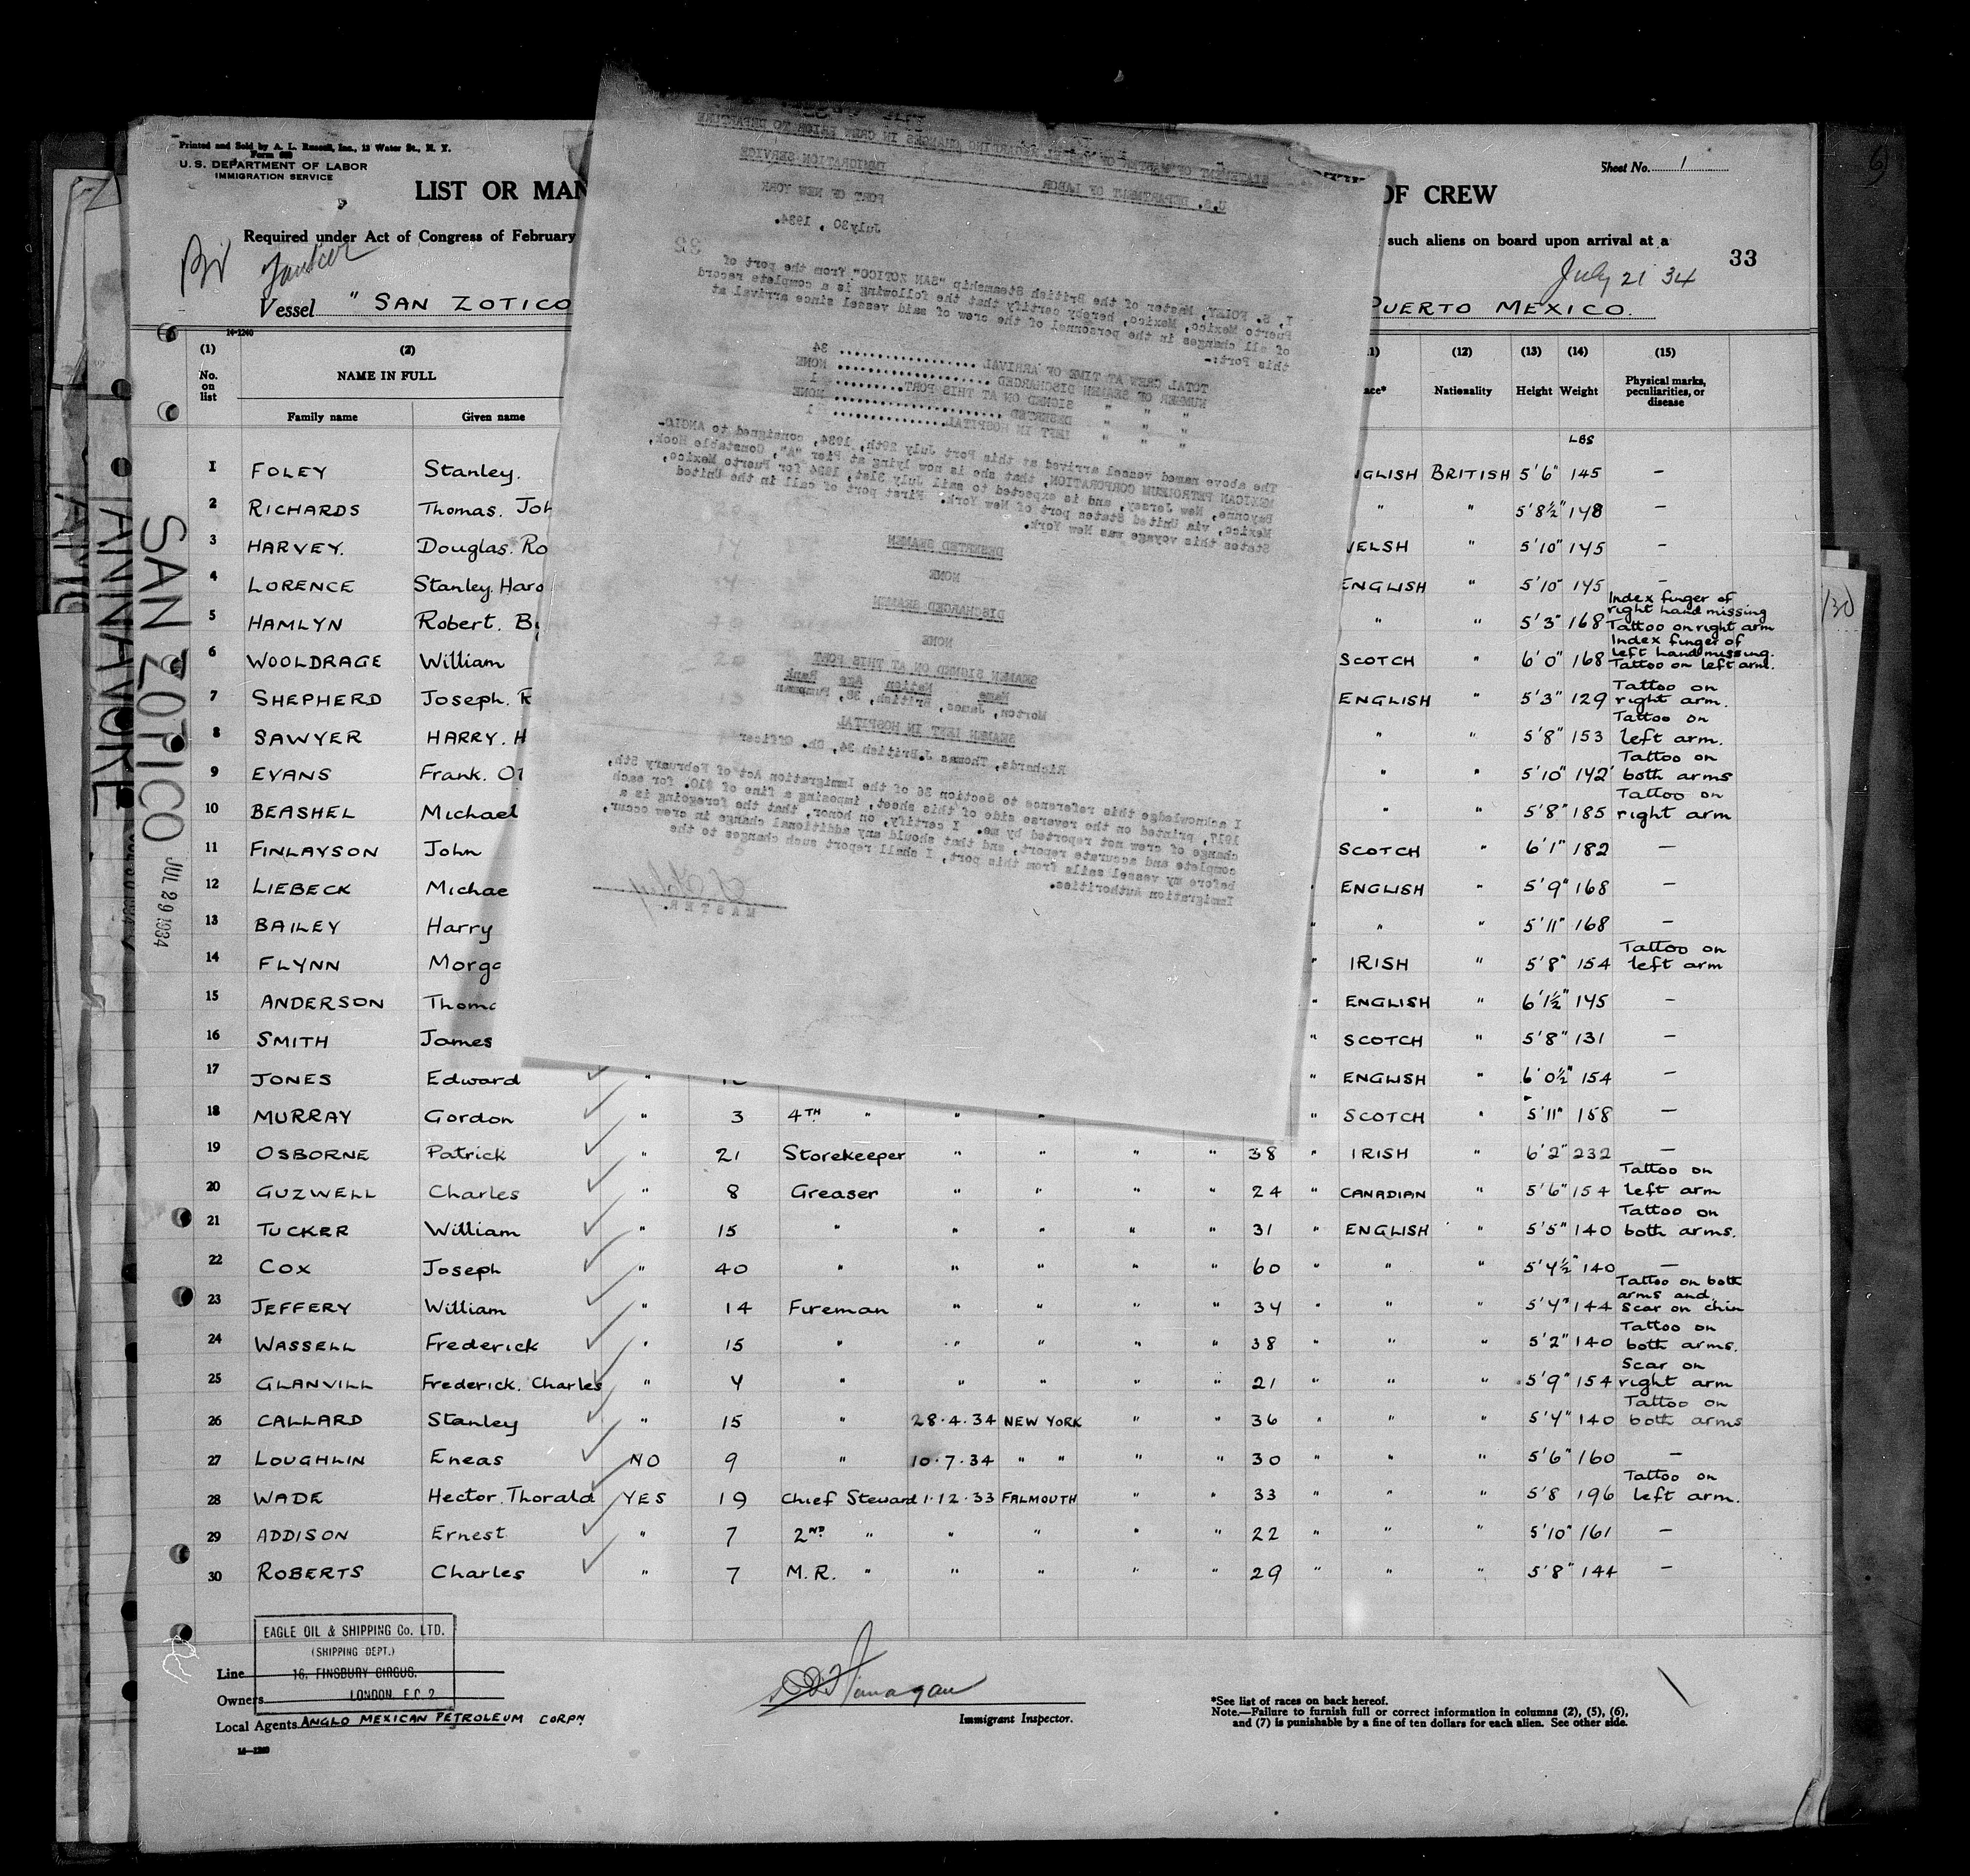 Printed and Sold by A. L. Russell, Inc., 13 Water St., N. Y.
U. S. DEPARTMENT OF LABOR
IMMIGRATION SERVICE
Sheet No. 1
LIST OR MAN
OF CREW
Required under Act of Congress of February
such aliens on board upon arrival at a
33
July 21 34
Vessel " SAN ZOTICO
PUERTO MEXICO.
14-1240
(1) (2) (12) (13) (14) (15)
No. on list NAME IN FULL Nationality Height Weight Physical marks, peculiarities, or disease
Family name Given name
LBS
1 FOLEY Stanley. NGLISH BRITISH 5'6" 145 —
2 RICHARDS Thomas. Joh " " 5'8½" 148 —
3 HARVEY. Douglas. Ro WELSH " 5'10" 145 —
4 LORENCE Stanley. Haro ENGLISH " 5'10" 145 —
5 HAMLYN Robert. B " " 5'3" 168 Index finger of right hand missing Tattoo on right arm
6 WOOLDRAGE William SCOTCH " 6'0" 168 Index finger of left hand missing. Tattoo on left arm.
7 SHEPHERD Joseph. R ENGLISH " 5'3" 129 Tattoo on right arm.
8 SAWYER HARRY. H " " 5'8" 153 Tattoo on left arm.
9 EVANS Frank. O " " 5'10" 142 Tattoo on both arms
10 BEASHEL Michael " " 5'8" 185 Tattoo on right arm
11 FINLAYSON John SCOTCH " 6'1" 182 —
12 LIEBECK Michae " ENGLISH " 5'9" 168 —
13 BAILEY Harry " " " 5'11" 168 —
14 FLYNN Morga " IRISH " 5'8" 154 Tattoo on left arm
15 ANDERSON Thoma " ENGLISH " 6'1½" 145 —
16 SMITH James " SCOTCH " 5'8" 131 —
17 JONES Edward " " ENGLISH " 6'0½" 154 —
18 MURRAY Gordon " 3 4TH " " " " SCOTCH " 5'11" 158 —
19 OSBORNE Patrick " 21 Storekeeper " " " " 38 " IRISH " 6'2" 232 —
20 GUZWELL Charles " 8 Greaser " " " " 24 " CANADIAN " 5'6" 154 Tattoo on left arm
21 TUCKER William " 15 " " " " " 31 " ENGLISH " 5'5" 140 Tattoo on both arms.
22 COX Joseph " 40 " " " " " 60 " " " 5'4½" 140 —
23 JEFFERY William " 14 Fireman " " " " 34 " " " 5'4" 144 Tattoo on both arms and. Scar on chin
24 WASSELL Frederick " 15 " " " " " 38 " " " 5'2" 140 Tattoo on both arms.
25 GLANVILL Frederick. Charles " 4 " " " " " 21 " " " 5'9" 154 Scar on right arm
26 CALLARD Stanley " 15 " 28.4.34 NEW YORK " " 36 " " " 5'4" 140 Tattoo on both arms
27 LOUGHLIN Eneas NO 9 " 10.7.34 " " " " 30 " " " 5'6" 160 —
28 WADE Hector. Thorald YES 19 Chief Steward 1.12.33 FALMOUTH " " 33 " " " 5'8 196 Tattoo on left arm.
29 ADDISON Ernest " 7 2ND " " " " " 22 " " " 5'10" 161 —
30 ROBERTS Charles " 7 M.R. " " " " " 29 " " " 5'8" 144 —
EAGLE OIL & SHIPPING Co. LTD.
(SHIPPING DEPT.)
Line 16, FINSBURY CIRCUS.
Owners LONDON. E.C.2
Local Agents ANGLO MEXICAN PETROLEUM CORPN
Immigrant Inspector.
*See list of races on back hereof.
Note.—Failure to furnish full or correct information in columns (2), (5), (6),
and (7) is punishable by a fine of ten dollars for each alien. See other side.
STATEMENT OF MASTER OF VESSEL REGARDING CHANGES IN CREW PRIOR TO DEPARTURE
U.S. DEPARTMENT OF LABOR IMMIGRATION SERVICE
PORT OF NEW YORK
July30 , 1934.
32
I, S. FOLEY, Master of the British Steamship "SAN ZOTICO" from the port of
Puerto Mexico, Mexico, hereby certify that the following is a complete record
of all changes in the personnel of the crew of said vessel since arrival at
this Port:-
TOTAL CREW AT TIME OF ARRIVAL .................. 34
NUMBER OF SEAMEN DISCHARGED .................... NONE
" " " SIGNED ON AT THIS PORT.......... 1
" " " DESERTED ...................... NONE
" " " LEFT IN HOSPITAL............... 1
The above named vessel arrived at this Port July 29th, 1934, consigned to ANGLO-
MEXICAN PETROLEUM CORPORATION, that she is now lying at Pier "A", Constable Hook,
Bayonne, New Jersey, and is expected to sail July 31st, 1934 for Puerto Mexico,
Mexico, via United States port of New York. First port of call in the United
States this voyage was New York.
DESERTED SEAMEN
NONE
DISCHARGED SEAMEN
NONE
SEAMEN SIGNED ON AT THIS PORT
Name Nation Age Rank
Morton, James, British, 38, Pumpman
SEAMEN LEFT IN HOSPITAL
Richards, Thomas J.British 34, Ch. Officer
I acknowledge this reference to Section 36 of the Immigration Act of February 5th,
1917, printed on the reverse side of this sheet, imposing a fine of $10. for each
change of crew not reported by me. I certify, on honor, that the foregoing is a
complete and accurate report, and that should any additional change in crew occur,
before my vessel sails from this port, I shall report such changes to the
Immigration Authorities.
S Foley
MASTER.
SAN ZOTICO JUL 29 1934
ANNAVORE
130